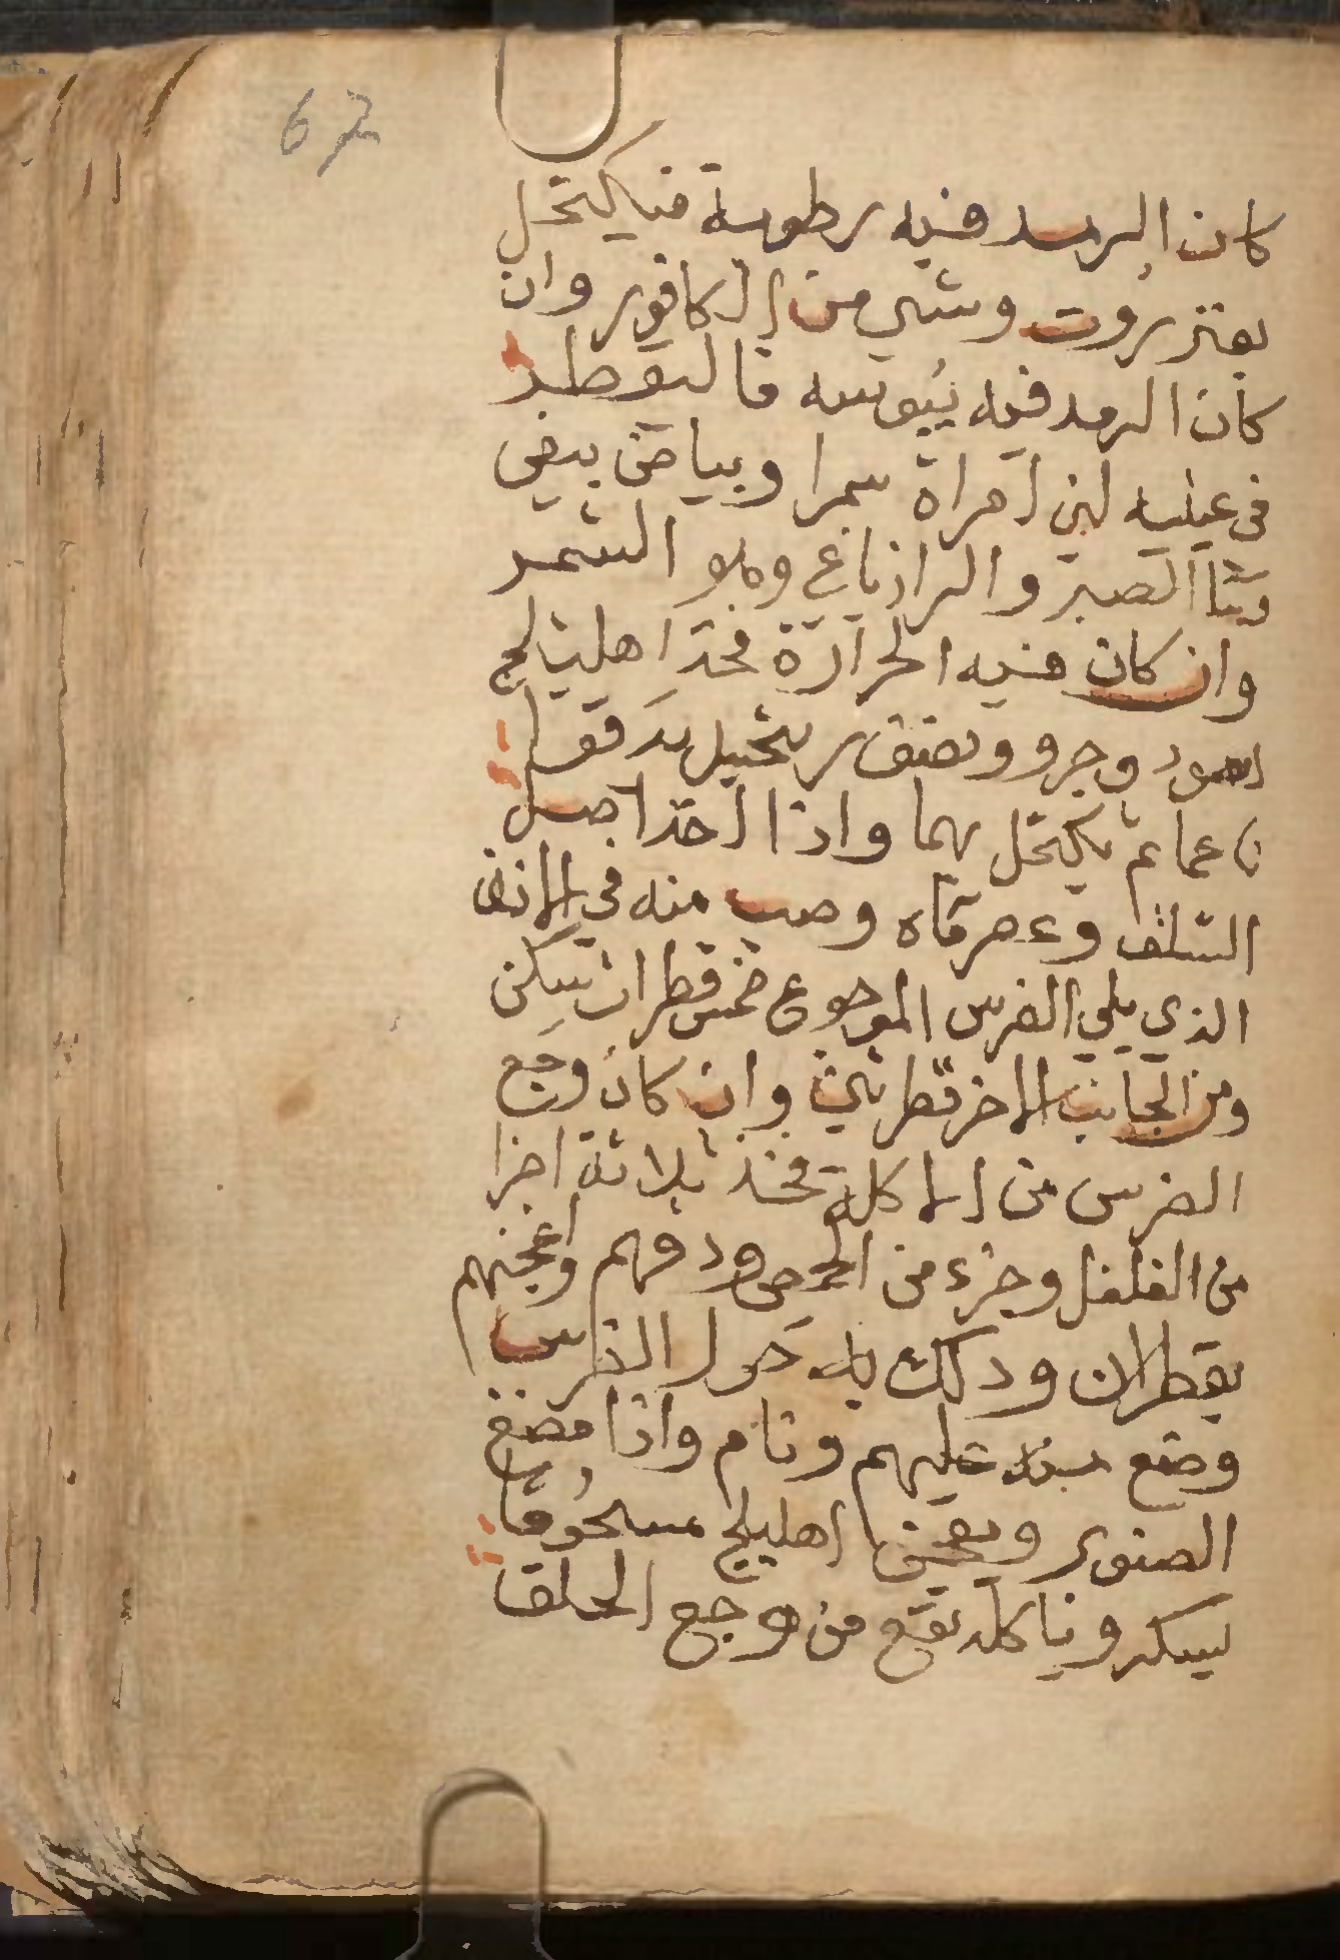 67
كان الرمد فيه رطوبة فيكتحل
بعنزروت وشي من الكافور وان
كان الرمد فيه يبوسه فاليقطر
في عينيه لبن امراة سمرا وبياض بيض
الصبر والرازيانج وهو الشمر
وان كان فيه الحرارة فخذ اهليلج
اسود وجرو ونصف زنجبيل يدقو
ناعما ثم يكتحل بهما واذا اخذ اصل
السلق وعصر ماه وصب منه في الانف
الذي يلي الضرس الموجوع خمس قطرات سكن
ومن الجانب الاخر قطرتين وان كان وجع
الضرس من الاكلة فخذ ثلاثة اجزا
من الفلفل وجزء من الحمص ودقهم واعجنهم
بقطران ودلك به حول الضرس
وضع منه عليهم ونام واذا مضغ
الصنوبر ويعجن اهليلج مسحوقا
بسكر وياكله نفع من وجع الحلق